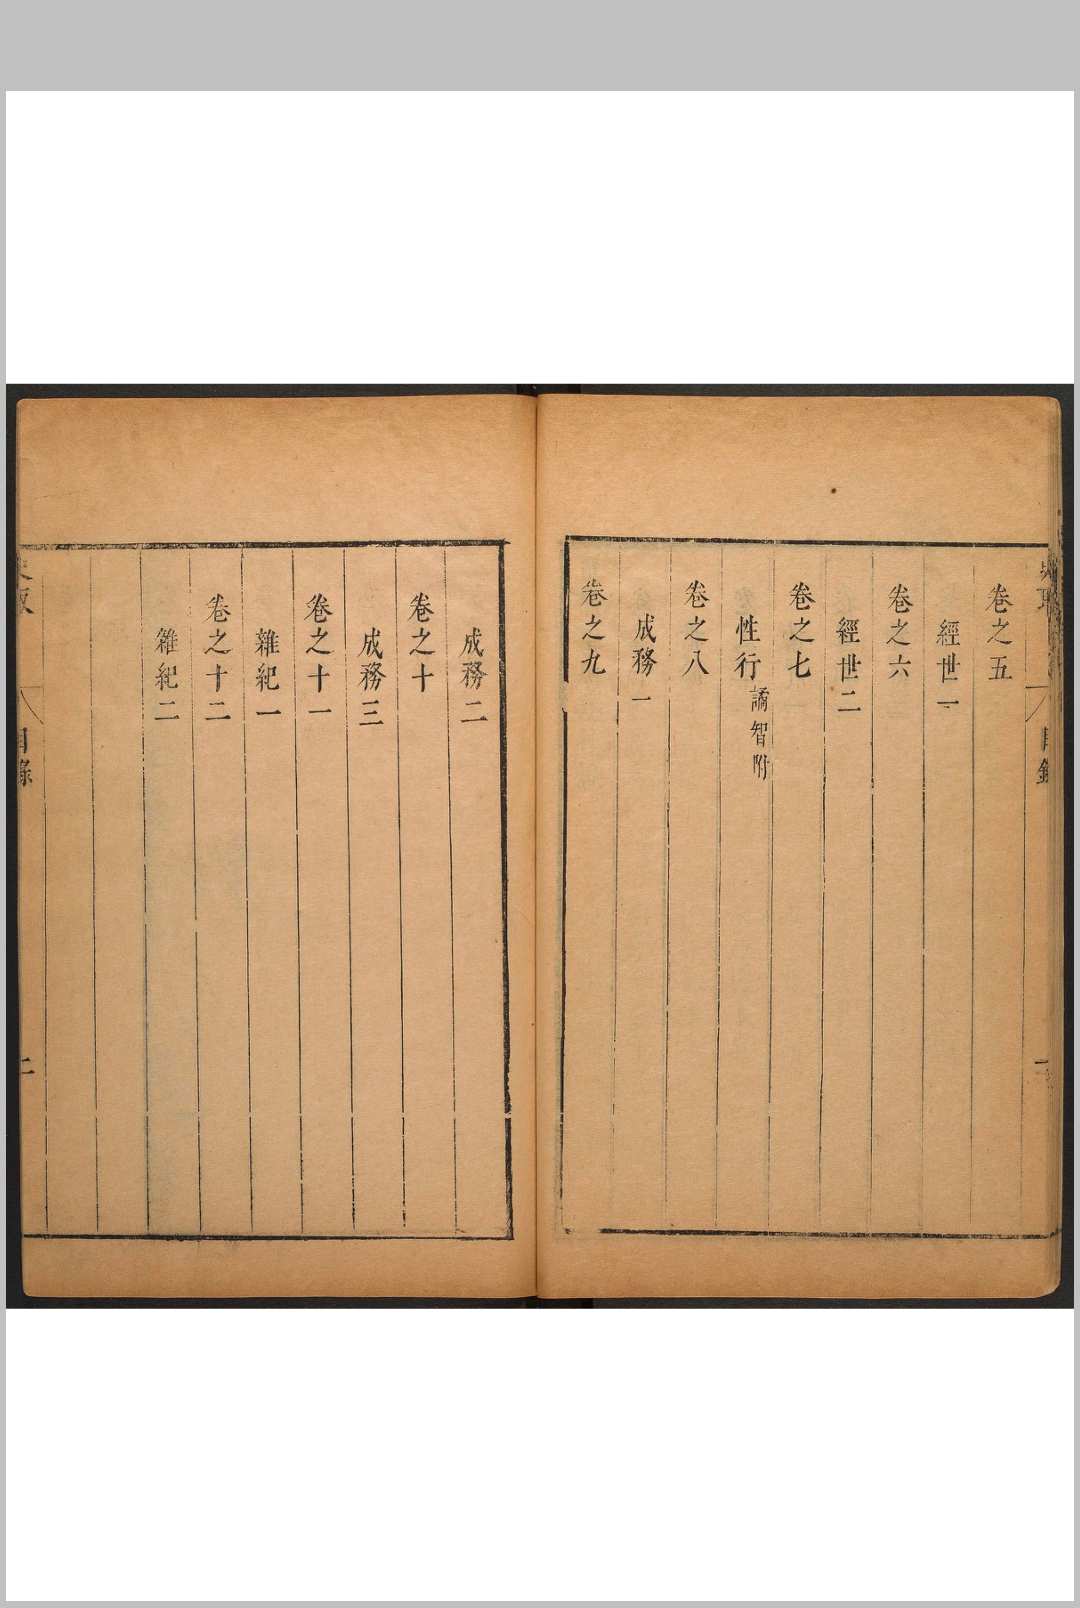 卷之五
經世一
卷之六
經世二
卷之七
性行 譎智附
卷之八
成務一
卷之九
成務二
卷之十
成務三
卷之十一
雜紀一
卷之十二
雜紀二
目錄
二